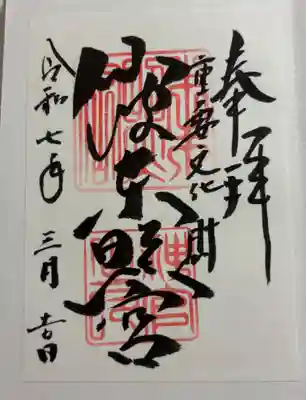 奉拝
重要文化財
仙波東照宮
令和七年三月吉日